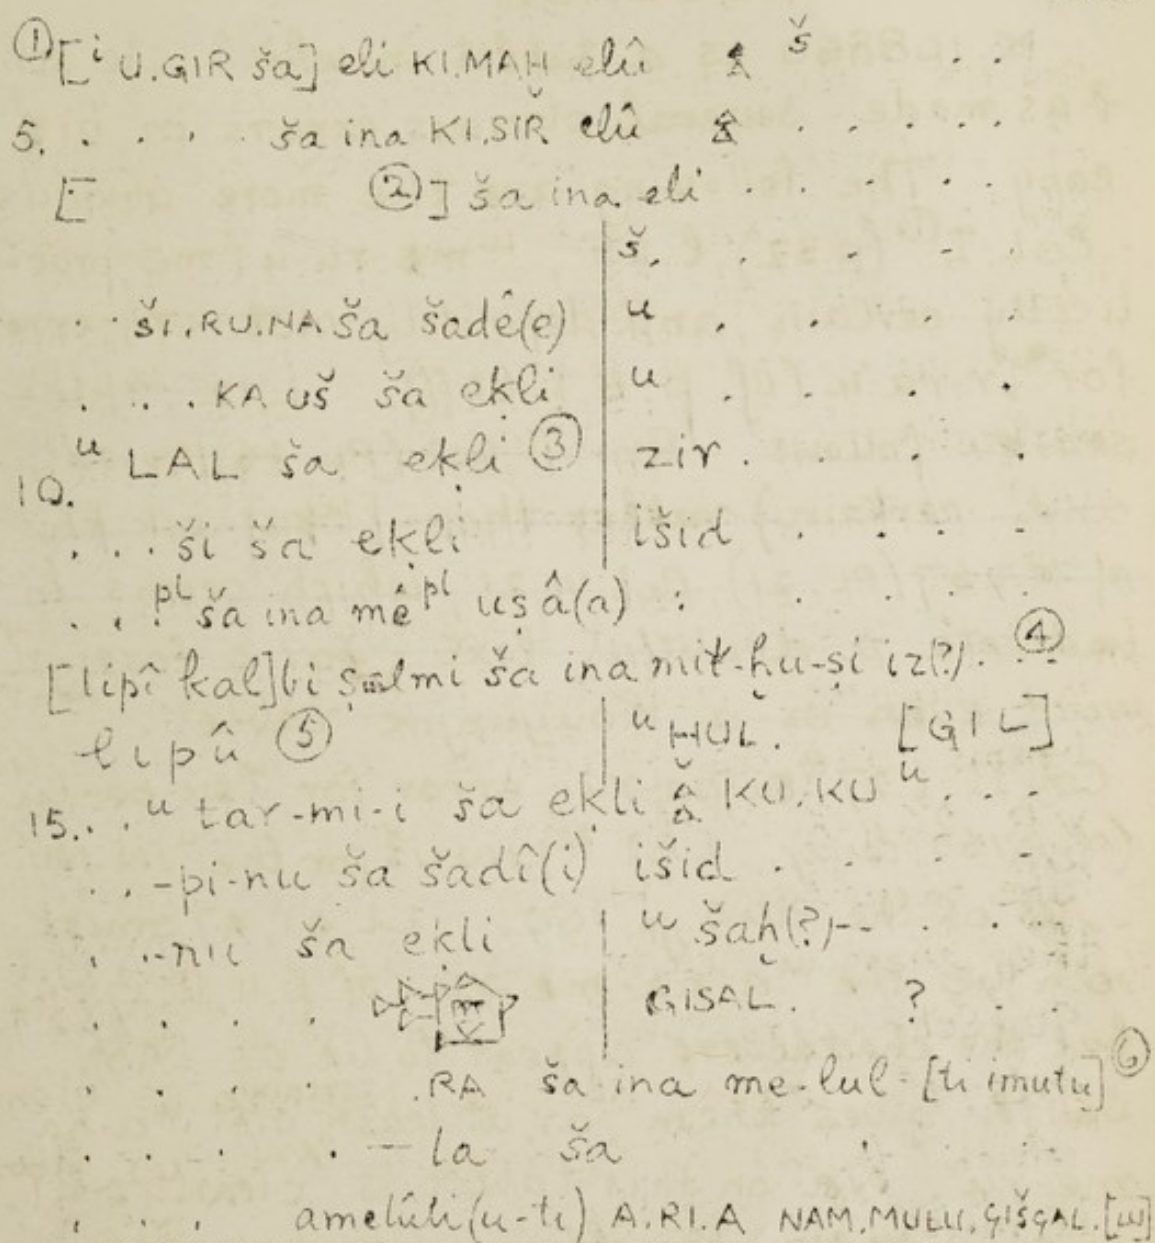 ① [ⁱ U.GIR ša] eli KI.MAḪ elû š . .
5. . . . . ša ina KI.SIR elû . . . . . .
[ ②] ša ina eli . . . . . .
š. . . . .
. . ŠI.RU.NA ša šadê(e) u . . . .
. . . KA UŠ ša eḳli u . . . .
10. ᵘ LAL ša eḳli ③ zir . . . .
. . . ši ša eḳli išid . . . .
. . . ᵖˡ ša ina mê ᵖˡ uṣâ(a) : . . . .
[lipî kal]bi ṣalmi ša ina mit-ḫu-ṣi iz(?). . . ④
lipû ⑤ ᵘ ḪUL. [GIL]
15. . . ᵘ tar-mi-i ša eḳli KU.KU ᵘ . . .
. . -pi-nu ša šadî(i) išid . . . .
. . -nu ša eḳli ᵘ šaḫ(?)-- . . .
. . . . GISAL. ? . .
. . . . .RA ša ina me-lul-[ti imutu] ⑥
. . . . - la ša . . .
. . . amelûti(u-ti) A.RI.A NAM.MULU.GIŠGAL.[LU]